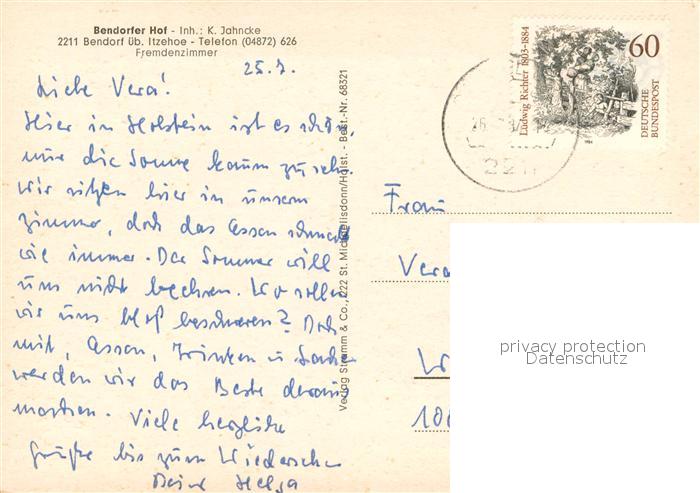 Bendorfer Hof - Inh.: K. Jahncke
2211 Bendorf üb. Itzehoe - Telefon (04872) 626
Fremdenzimmer
25.7.
Liebe Vera!
Hier in Holstein ist es schön,
nur die Sonne kaum zu seh.
Wir sitzen hier in unserm
Zimmer, doch das Essen schmeckt
wie immer. Der Sommer will
uns nicht beehren. Wo sollen
wir uns bloß beschweren? Doch
mit Essen, Trinken u.
werden wir das Beste daraus
machen. Viele herzliche
Grüße bis zum Wiedersehn
Deine Helga
Verlag Stramm & Co., 222 St. Michaelisdonn/Holst. - Best.-Nr. 68321
Ludwig Richter 1803-1884
60
DEUTSCHE
BUNDESPOST
221
Frau
Vera
privacy protection
Datenschutz
W
100